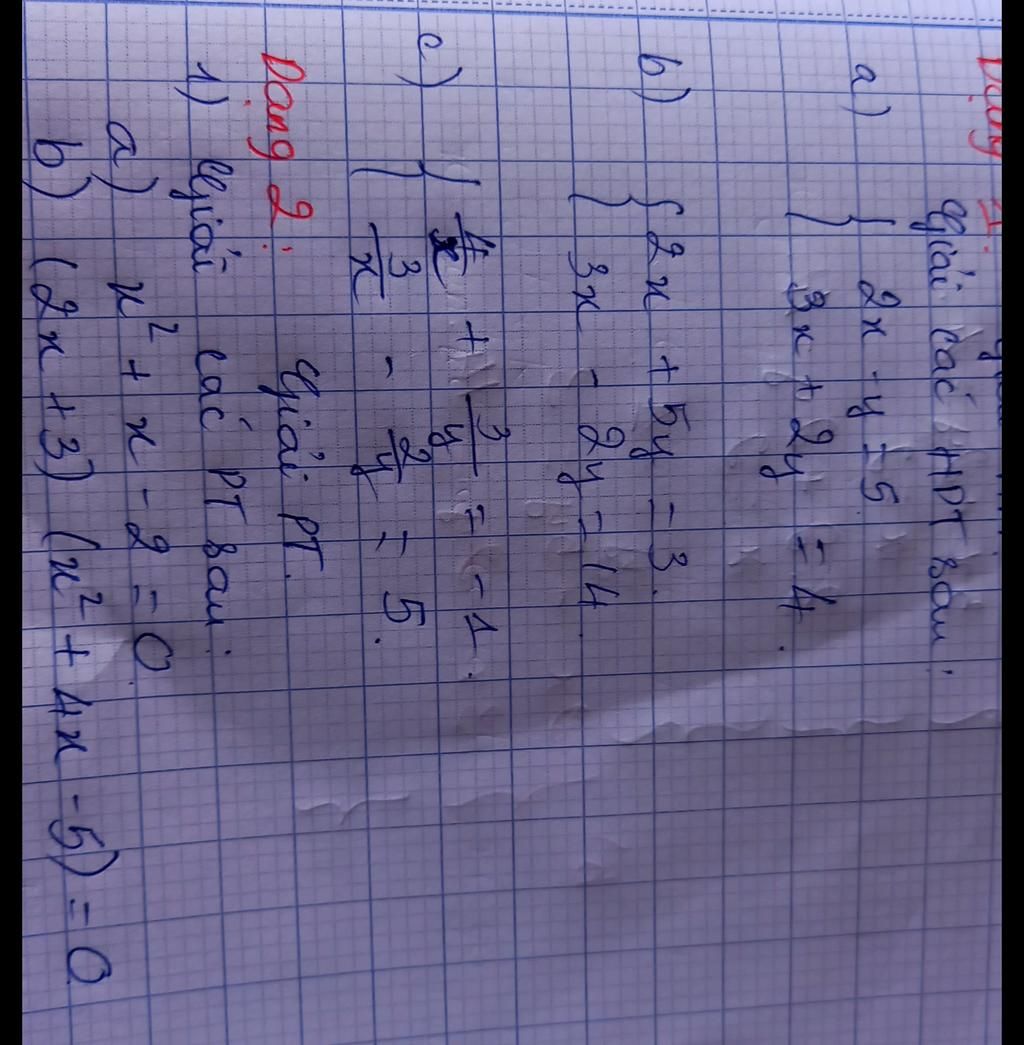 Dạng 1:
Giải các HPT sau:
a) { 2x - y = 5
3x + 2y = 4.
b) { 2x + 5y = 3.
3x - 2y = 14.
c) { 4/x + 3/y = -1.
3/x - 2/y = 5.
Dạng 2: Giải PT.
1) Giải các PT sau:
a) x² + x - 2 = 0
b) (2x + 3) (x² + 4x - 5) = 0